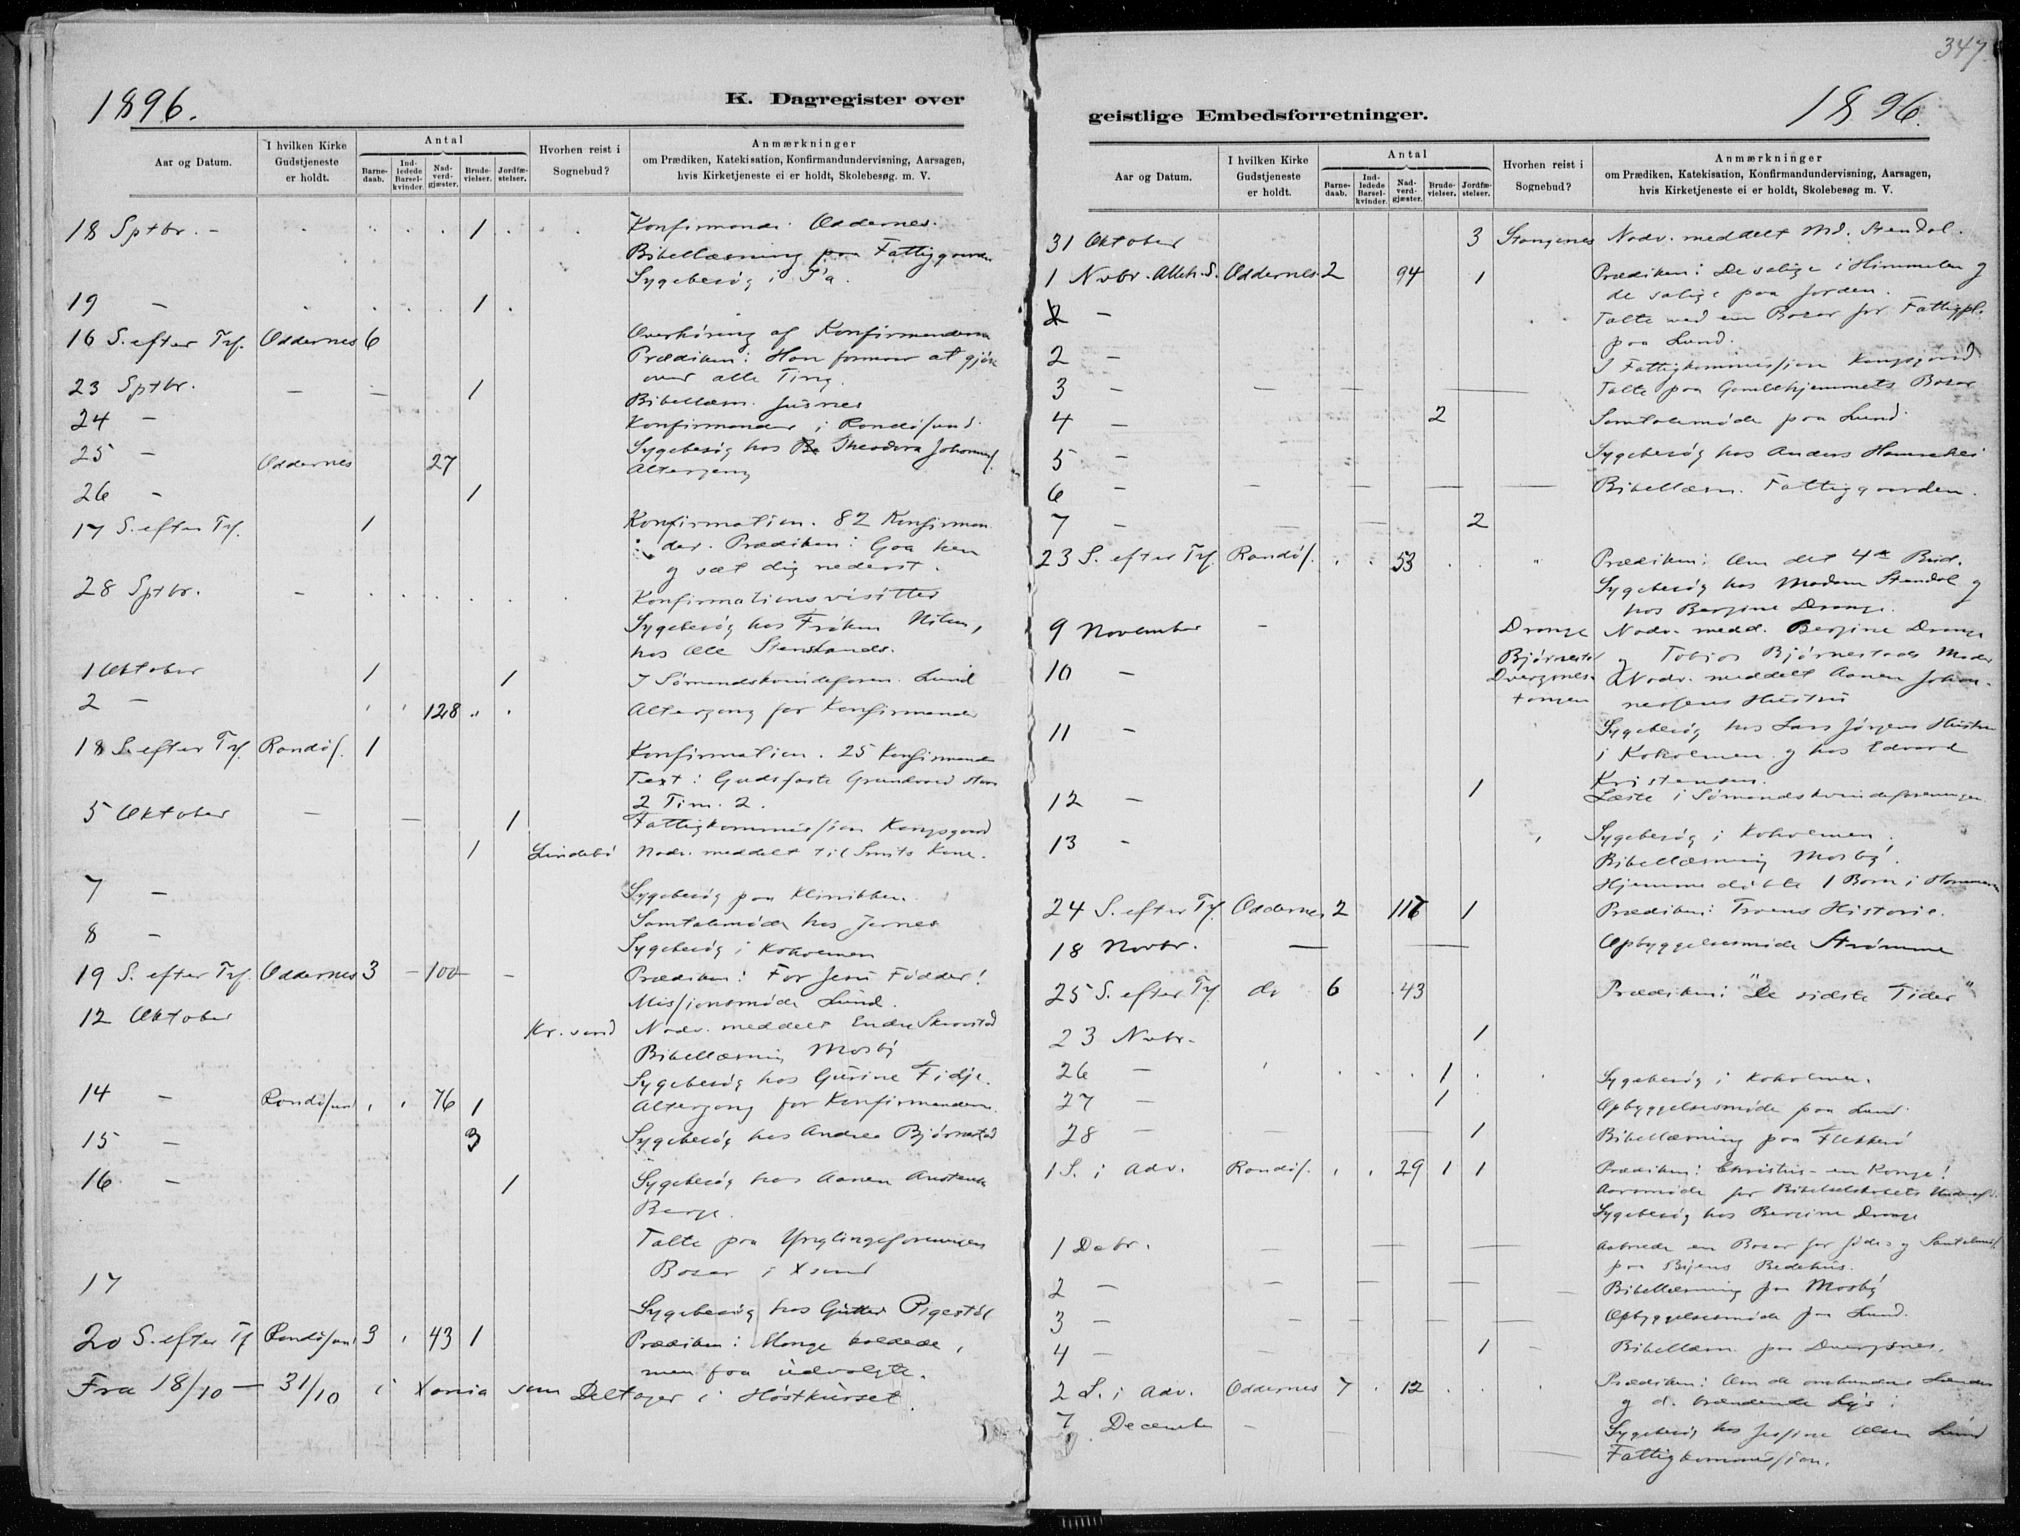 1896.
K. Dagregister over
Aar og Datum.
I hvilken Kirke Gudstjeneste er holdt.
Antal
Barne-daab.
Ind-ledede Barsel-kvinder.
Nad-verd-gjæster.
Brude-vielser.
Jordfæ-stelser.
Hvorhen reist i Sognebud?
Anmærkninger
om Prædiken, Katekisation, Konfirmandundervisning, Aarsagen,
hvis Kirketjeneste ei er holdt, Skolebesøg. m. V.
18 Sptbr. - 1 Konfirmander Oddernes.
Bibellæsning paa Fattiggaarden
Sygebesøg i
19 - 1
16 S. efter Trf. Oddernes 6 Overhøring af Konfirmanderne
Prædiken: Han formaar at gjøre
over alle Ting.
23 Sptbr. - - 1 Bibellæsn. Jusnes
24 - Konfirmander i Randøsund.
25 - Sygebesøg hos Theodora
Oddernes 27 Altergang
26 - 1
17 S. efter Trf. 1 Konfirmation. 82 Konfirman
der. Prædiken: Gaa hen
og sæt dig nederst.
28 Sptbr. - Konfirmationsvisitter
Sygebesøg hos Frøken
hos Ole
1 Oktober 1 1 I Sømandskvindeforen. Lund
2 - 128 Altergang for Konfirmander
18 S. efter Trf. Randøs. 1 Konfirmation. 25 Konfirmander
Text: Guds faste Grundvold staar
2 Tim. 2.
5 Oktober - - 1 Fattigkommission Kongsgaard
1 Lindebø Nadv. meddelt til Smits Kone.
7 - Sygebesøg paa Klinikken
8 - Samtalemøde hos Jernes
Sygebesøg i Kokolmen
19 S. efter Trf. Oddernes 3 - 100 - Prædiken: For Jesu Fødder!
Missionsmøde Lund.
12 Oktober Kr. sand Nadv. meddelt Endre
Bibellæsning Mosby
Sygebesøg hos Gurine Fidje.
14 - Randøsund 76 1 Altergang for Konfirmanderne.
15 - 3 Sygebesøg hos Andrea Bjørnestad
16 - 1 Sygebesøg hos Aanen
Berge.
Talte paa Ynglingeforeningens
Basar i Xsand
17
Sygebesøg hos
20 S. efter Tf Randøsund 3 43 1 Prædiken: Mange kaldede,
men faa udvalgte.
Fra 18/10 - 31/10 i Xania som Deltager i Høstkurset.
347
geistlige Embedsforretninger.
1896.
Aar og Datum.
I hvilken Kirke Gudstjeneste er holdt.
Antal
Barne-daab.
Ind-ledede Barsel-kvinder.
Nad-verd-gjæster.
Brude-vielser.
Jordfæ-stelser.
Hvorhen reist i Sognebud?
Anmærkninger
om Prædiken, Katekisation, Konfirmandundervisning, Aarsagen,
hvis Kirketjeneste ei er holdt, Skolebesøg m. V.
31 Oktober 3 Stangenes Nadv. meddelt Md. Stendal.
1 Nvbr. Alleh. S. Oddernes 2 94 1 Prædiken: De salige i Himmelen og
de salige paa Jorden.
- Talte ved en Basar for Fattigpl.
paa Lund.
2 - I Fattigkommission Kongsgaard
3 - Talte paa Gamlehjemmets Basar
4 - 2 Samtalemøde paa Lund.
5 - Sygebesøg hos Anders
6 - Bibellæsn. Fattiggaarden.
7 - 2
23 S. efter Trf. Randøs. 53 Prædiken: Om det 4de Bud.
Sygebesøg hos Madam Stendal og
hos Bergine Drange.
9 November - Drange Nadv. medd. Bergine Drange
Bjørnestad og Tobias Bjørnestads Moder
10 - Nadv. meddelt Aanen Johan-
nesens Hustru
11 - Sygebesøg hos Lars Jørgens Hustru
i Kokolmen og hos Edvard
Kristensen.
12 - 1 Læste i Sømandskvindeforeningen
13 - Sygebesøg i Kokolmen.
Bibellæsning Mosby.
Hjemmedøbte 1 Barn i
24 S. efter Tf. Oddernes 2 116 1 Prædiken: Troens Historie.
18 Novbr. - Opbyggelsesmøde Strømme
25 S. efter Tf. do 6 43 Prædiken: "De sidste Tider"
23 Nvbr. 1
26 - 1 Sygebesøg i Kokolmen.
27 - 1 Opbyggelsesmøde paa Lund.
28 - 1 Bibellæsning paa Flekkerø
1 S. i Adv. Randøs. 29 1 1 Prædiken: Christus - en Konge!
Aarsmøde for Bibelselskabets
Sygebesøg hos Bergine Drange
1 Dcbr. - Aabnede en Basar for Jøde- og
paa Byens Bedehus.
2 - Bibellæsning paa Mosby
3 - Opbyggelsesmøde paa Lund.
4 - 1 - Bibellæsn. paa Dvergsnes.
2 S. i Adv. Oddernes 7 12 Prædiken: Om de ombundne Lænder
og d. brændende Lys.
7 December - Sygebesøg hos Jessine Olsen Lund
Fattigkommission.